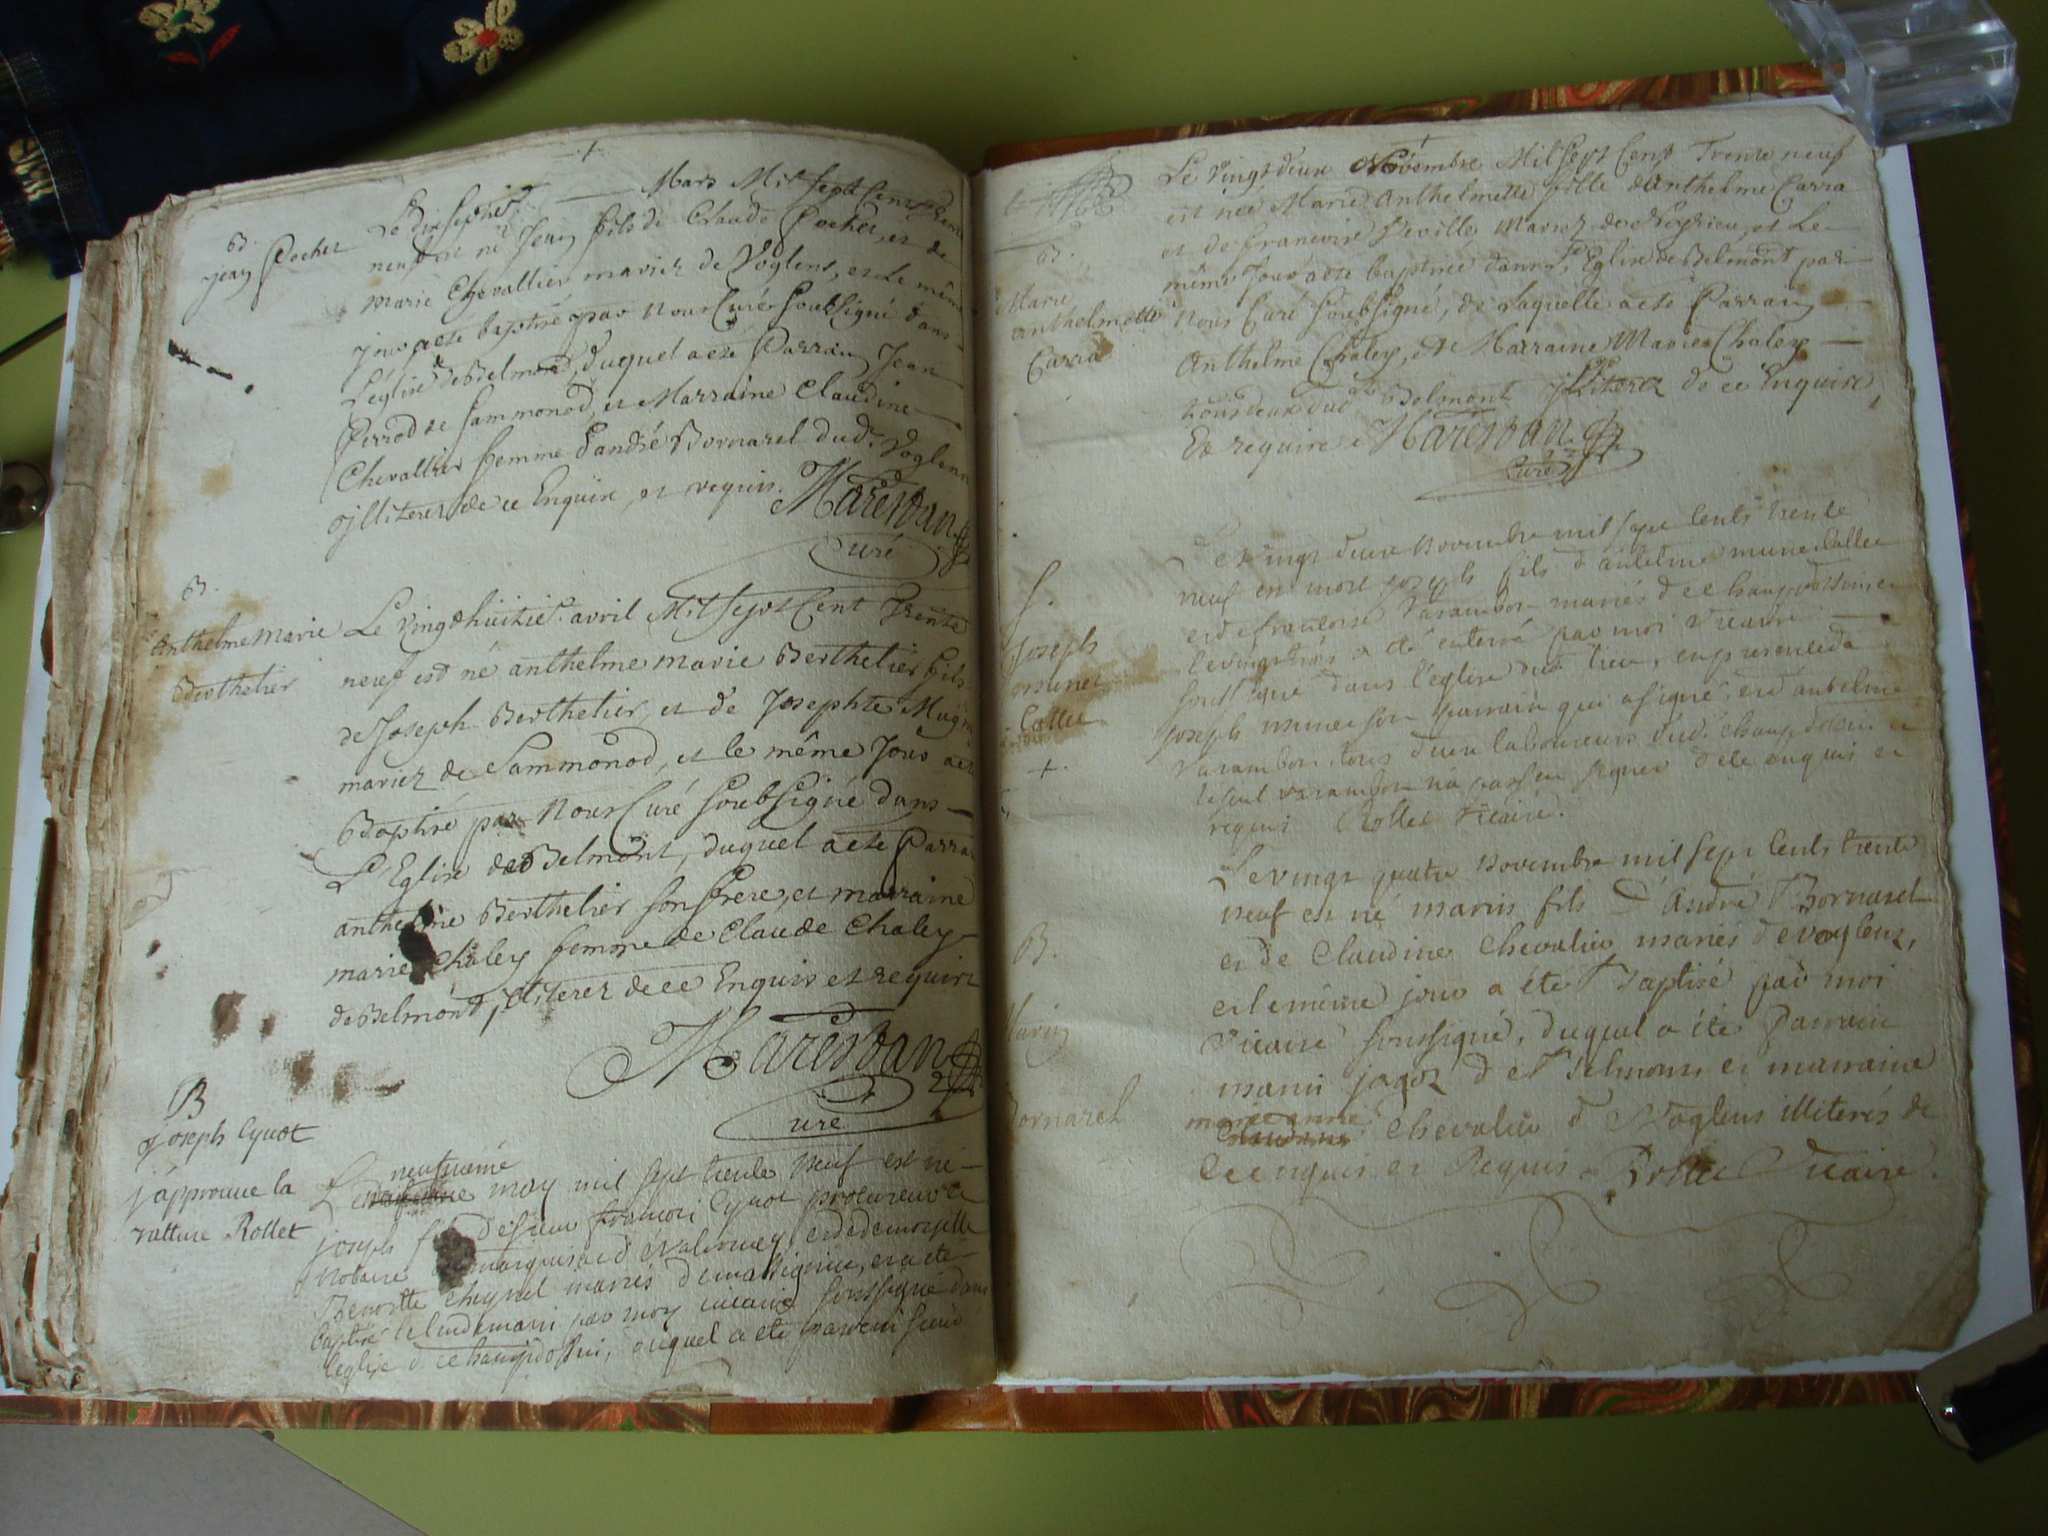 B.
jean Pochet
Le dix septie. Mars Mil sept Cens trente
neuf est né Jean fils de Claude Pochet, et de
marie Chevallier mariez de Voglens, et le même
jour a eté baptisé par Nous Curé soubsigné dans
L'église de Belmond, duquel a eté Parrain Jean
Perrod de Sammonod, et Marraine Claudine
Chevallier femme d'andré Bornarel dud. Voglens
jlliterez de ce Enquis, et requis. Marestan
Curé
B.
Anthelme Marie
Berthelier
Le Vingthuitie. avril Mil Sept Cent Trente
neuf est né anthelme marie Berthelier fils
de Joseph Berthelier, et de Josephte
mariez de Sammonod, et le même Jour a eté
Baptisé par Nous Curé soubsigné dans
L'Eglise de Belmont, duquel a eté Parrain
anthelme Berthelier son frere, et marraine
marie Chaley femme de Claude Chaley
de Belmont, jlliterez de ce Enquis et requis
Marestan
Curé
B
joseph Cyvot
j'approuve la
rature Rollet
neufvieme
Le may mil sept trente neuf est né
joseph fils de sieur francois Cyvot procureur et
Notaire marquisat de Valromey et de demoiselle
Benoitte Cheynel mariés de massignieu, et a eté
baptisé le lendemain par moy vicaire soussigné dans
l'eglise de champdossin, duquel a eté parrain sieur
Le Vingt deux Novembre Mil Sept Cens Trente neuf
est née Marie Anthelmette fille d'Anthelme Carra
et de francoise Mariez de et Le
même Jour a eté baptisée dans l'Eglise de Belmont par
Nous Curé soubsigné, de Laquelle a eté Parrain
Anthelme Chaley, et Marraine Marie Chaley
tous deux dud. Belmont jlliterez de ce Enquis,
Et requis Marestan
Curé
B.
Marie
anthelmette
Carra
Le vingt deux novembre mil sept cents trente
neuf est mort joseph fils d'antelme munet Callet
et de francoise Varambon mariés de champdossin et
le vingt trois a été enterré par moi vicaire
soussigné dans l'église dud. lieu, en presence de
joseph munet son parrain qui a signé et d'antelme
Varambon tous deux laboureurs dud. champdossin et
le seul varambon n'a pas sçu signer de ce enquis et
requis Rollet vicaire.
Joseph
munet
Callet
+
Le vingt quatre novembre mil sept cents trente
neuf est né marin fils d'André Bornarel
et de Claudine Chevalier mariés de voglens,
et le même jour a été Baptisé par moi
Vicaire soussigné, duquel a été Parrain
marin de Belmont et marraine
marie anne Chevalier de Voglens illiterés de
ce enquis et Requis Rollet Vicaire.
B.
Marin
Bornarel